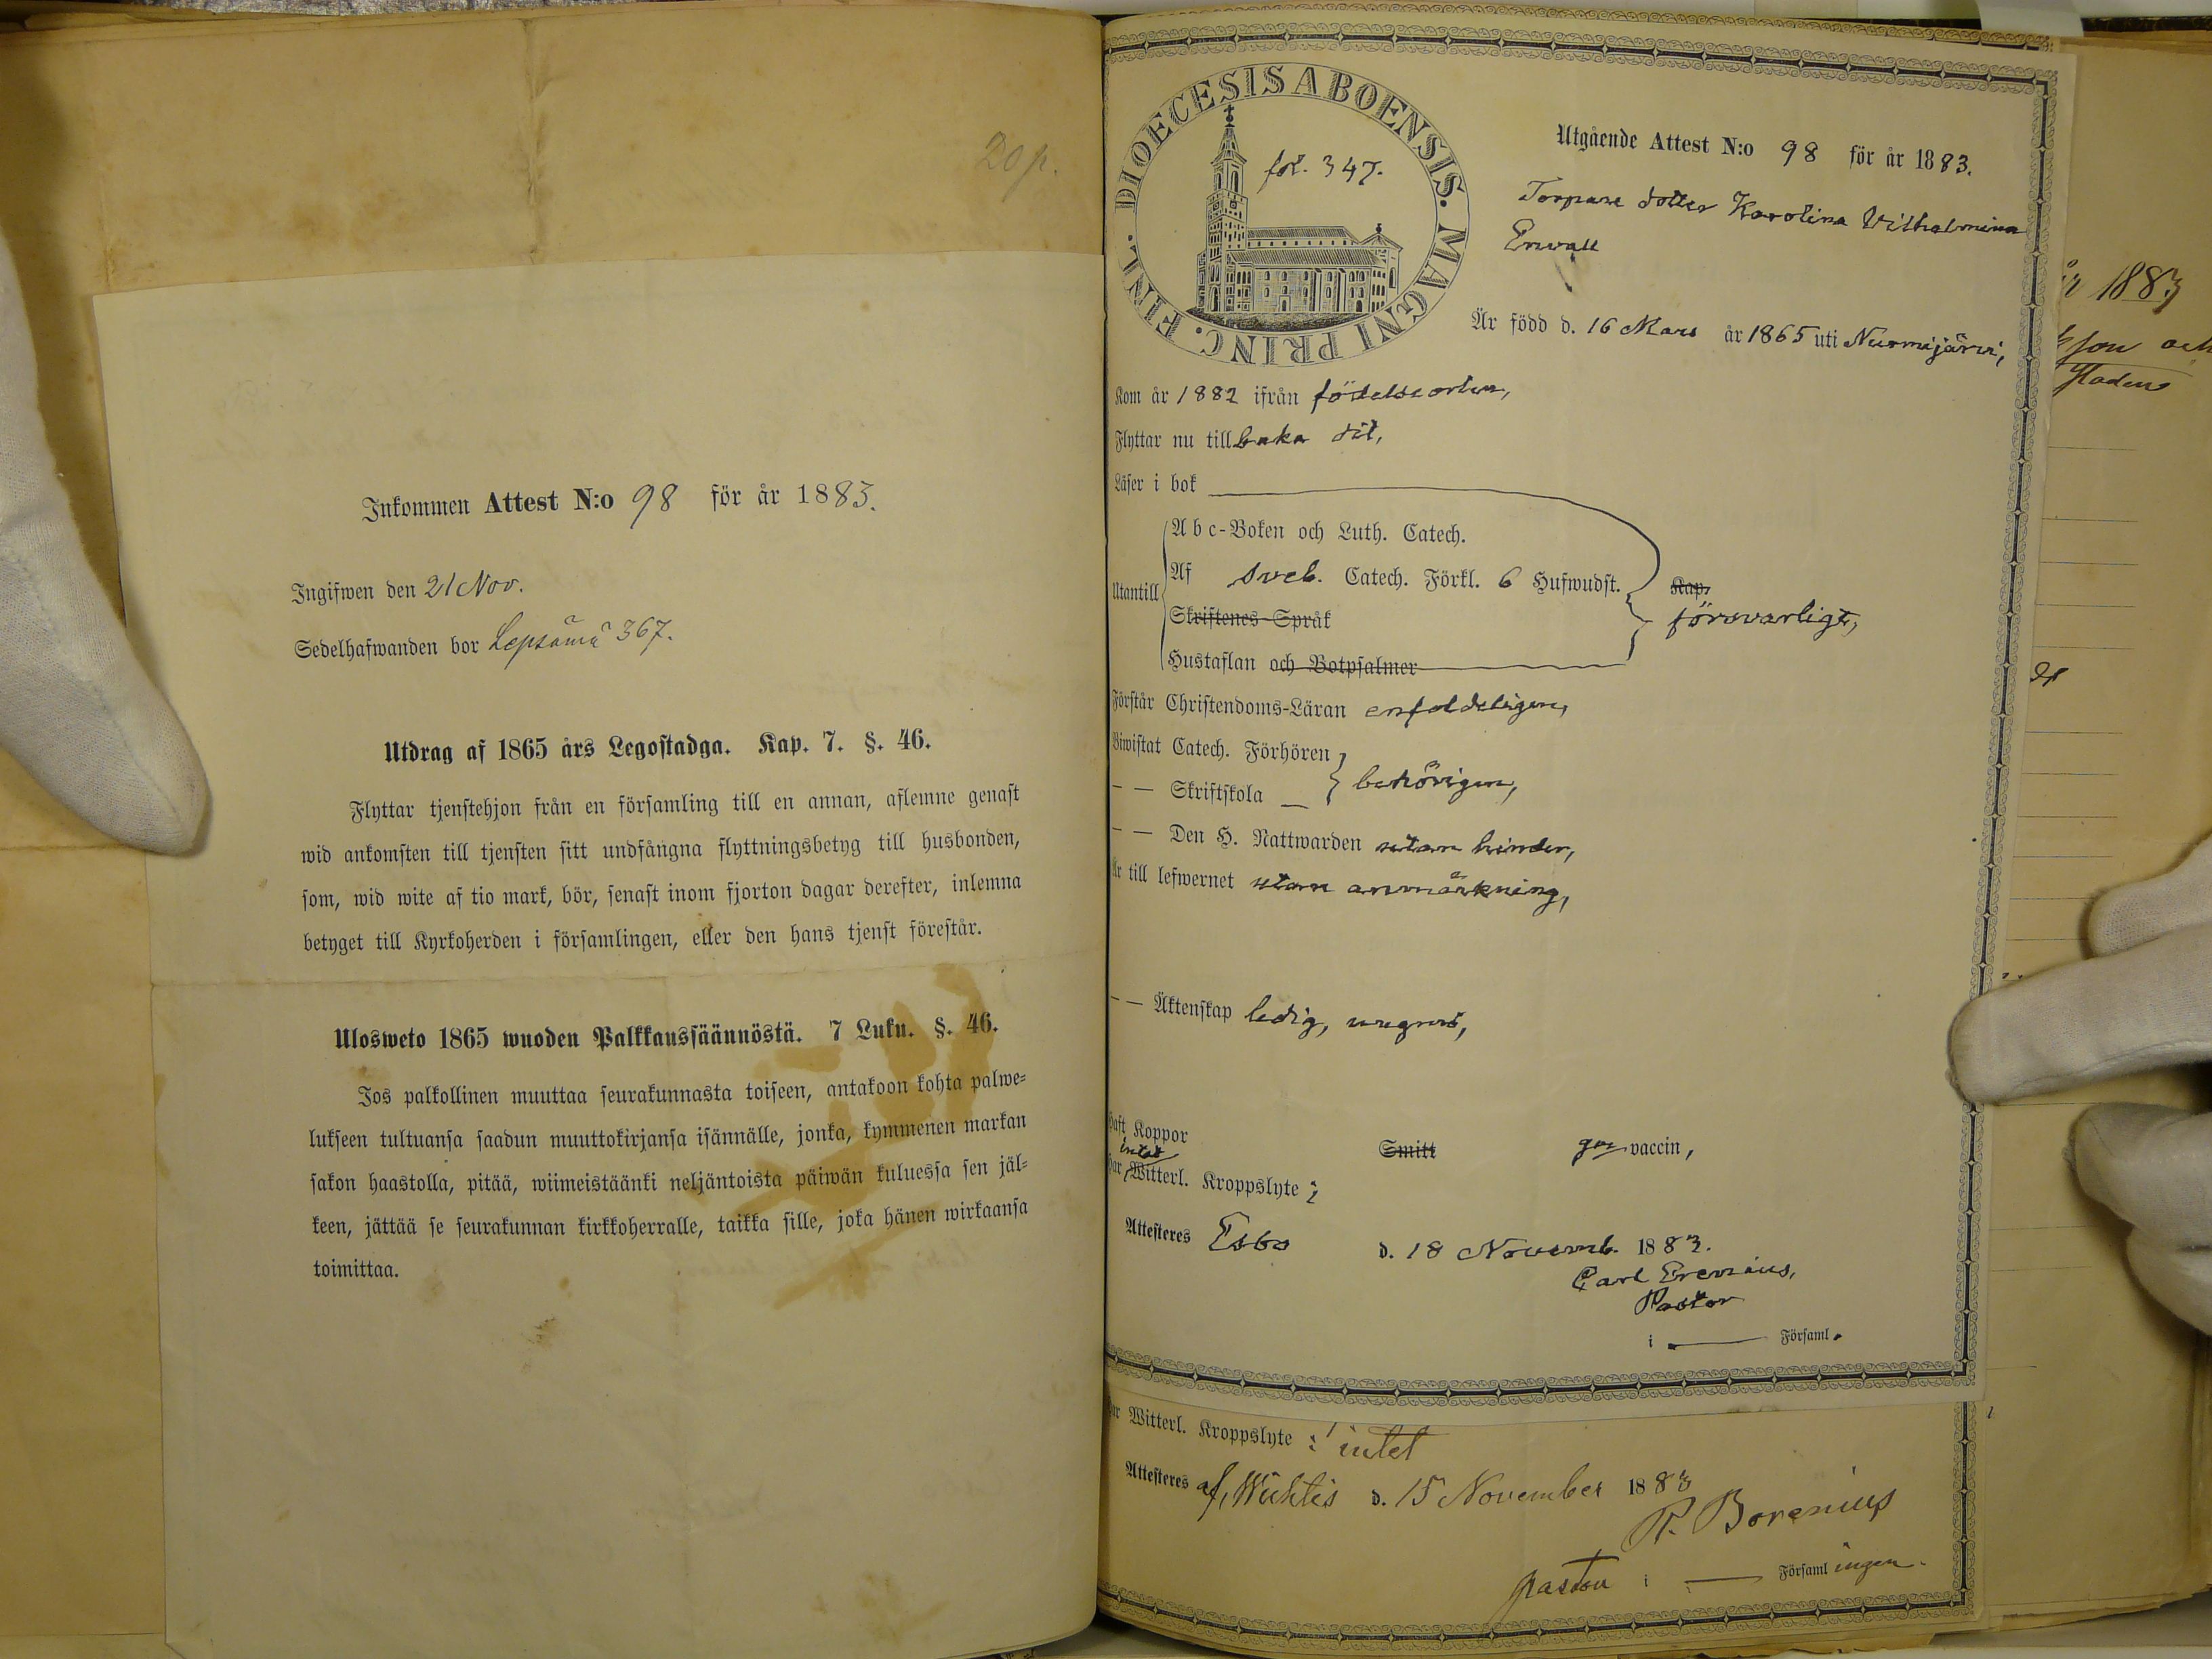 20 p.
Inkommen Attest N:o 98 för år 1883.
Ingifwen den 21 Nov.
Sedelhafwanden bor Lepsämä 367.
Utdrag af 1865 års Legostadga. Kap. 7. §. 46.
Flyttar tjenstehjon från en församling till en annan, aflemne genast
wid ankomsten till tjensten sitt undfångna flyttningsbetyg till husbonden,
som, wid wite af tio mark, bör, senast inom fjorton dagar derefter, inlemna
betyget till Kyrkoherden i församlingen, eller den hans tjenst förestår.
Ulosweto 1865 wuoden Palkkaussäännöstä. 7 Luku. §. 46.
Jos palkollinen muuttaa seurakunnasta toiseen, antakoon kohta palwe=
lukseen tultuansa saadun muuttokirjansa isännälle, jonka, kymmenen markan
sakon haastolla, pitää, wiimeistäänki neljäntoista päiwän kuluessa sen jäl=
keen, jättää se seurakunnan kirkkoherralle, taikka sille, joka hänen wirkaansa
toimittaa.
DIOECESIS ABOENSIS. MAGNI PRINC. FINL.
fol. 347.
Utgående Attest N:o 98 för år 1883.
Torpare dotter Karolina Vilhelmina
Enwall
Är född d. 16 Mars år 1865 uti Nurmijärvi,
Kom år 1882 ifrån födelseorten,
Flyttar nu tillbaka dit,
Läser i bok
Utantill
Abc-Boken och Luth. Catech.
Af Sveb. Catech. Förkl. 6 Hufwudst.
Skriftenes Språk
Hustaflan och Botpsalmer
Kap.
försvarligt,
Förstår Christendoms-Läran enfaldeligen,
Biwistat Catech. Förhören
— — Skriftskola
behörigen,
— — Den H. Nattwarden utan hinder,
Är till lefwernet utan anmärkning,
— — Äktenskap ledig,
Haft Koppor Smitt gm vaccin,
intet
Har Witterl. Kroppslyte
Attesteres Esbo d. 18 Novemb. 1883.
Carl Erenius,
Pastor
i Församl.
Har Witterl. Kroppslyte: intet
Attesteres af, Wichtis d. 15 November 1883
R. Borenius
pastor i Församlingen.
år 1883
son och